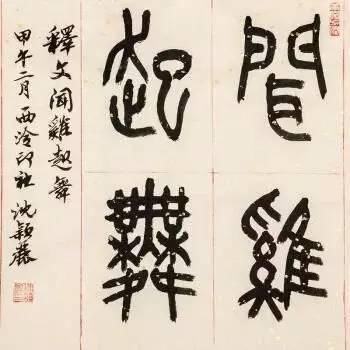 聞雞
起舞
釋文聞雞起舞
甲午二月西泠印社沈穎麗